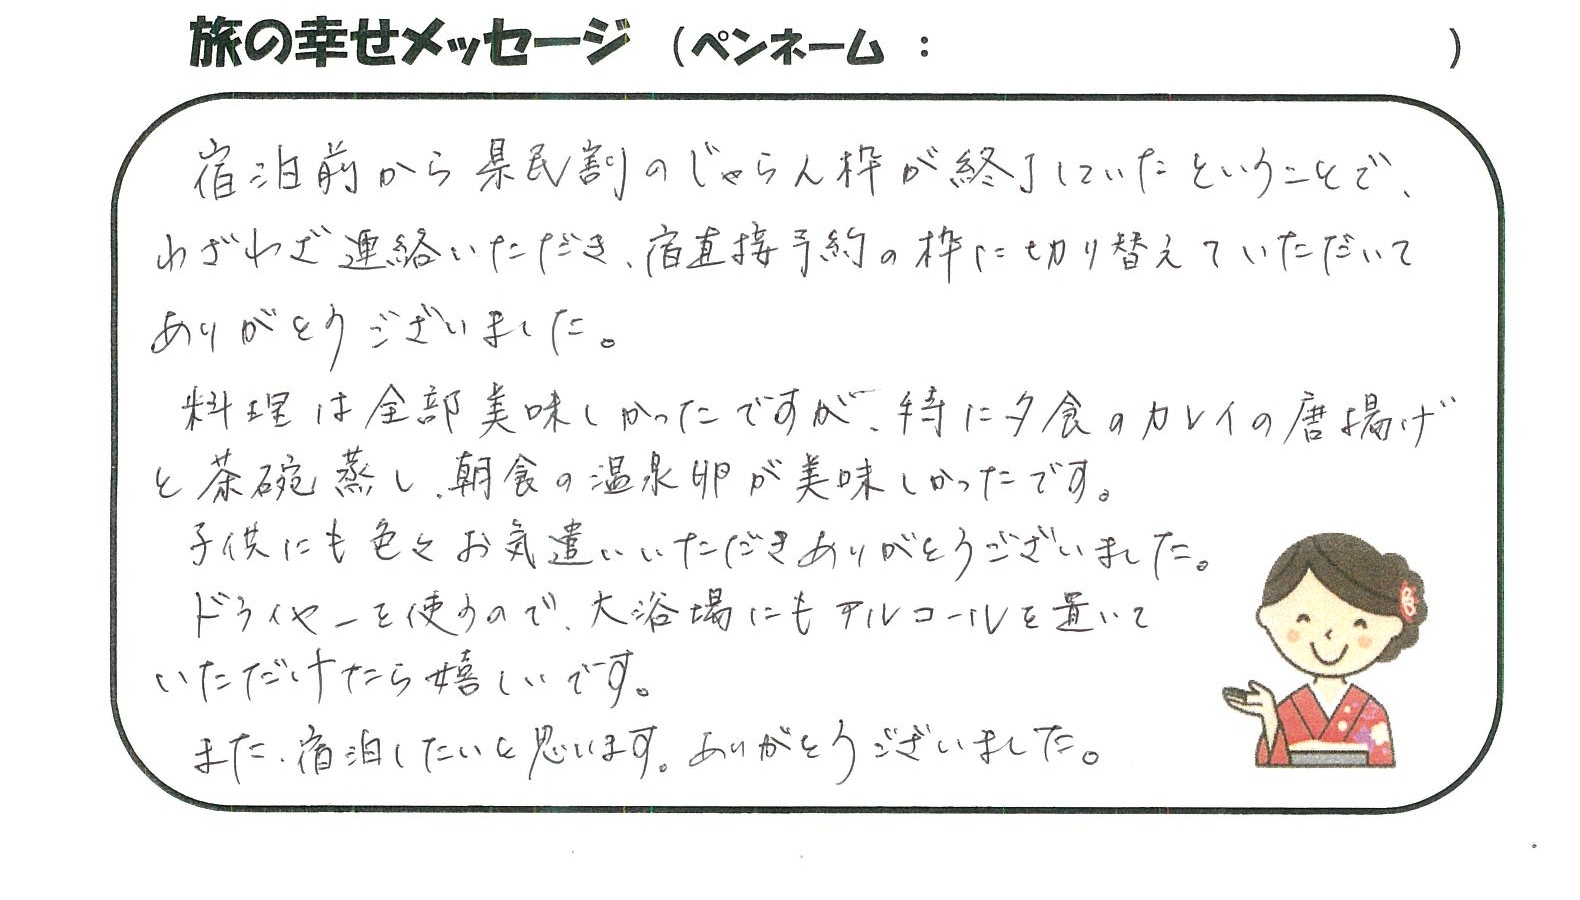 旅の幸せメッセージ (ペンネーム : )
宿泊前から県民割のじゃらん枠が終了していたということで、
わざわざ連絡いただき、宿直接予約の枠に切り替えていただいて
ありがとうございました。
料理は全部美味しかったですが、特に夕食のカレイの唐揚げ
と茶碗蒸し、朝食の温泉卵が美味しかったです。
子供にも色々お気遣いいただきありがとうございました。
ドライヤーを使うので、大浴場にもアルコールを置いて
いただけたら嬉しいです。
また、宿泊したいと思います。ありがとうございました。